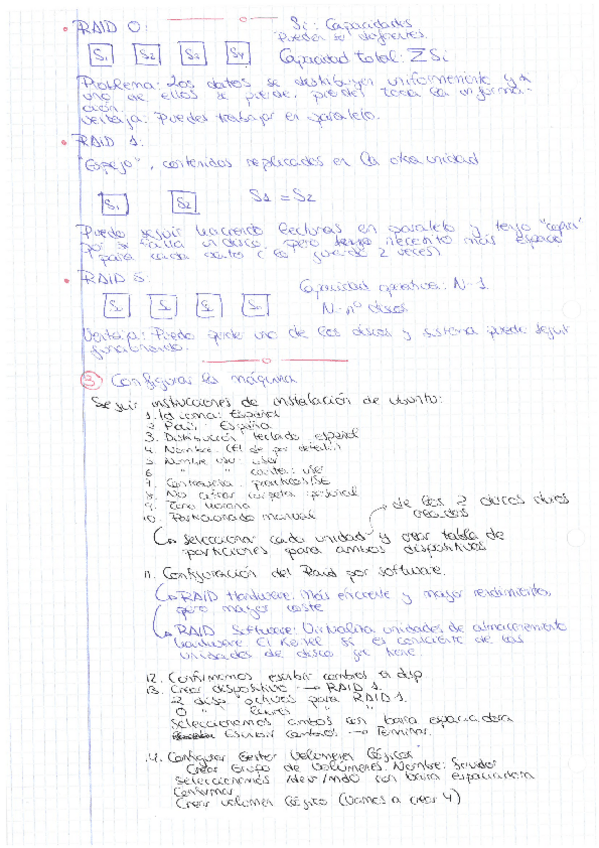 • RAID 0:
Si: Capacidades
Pueden ser diferentes.
S1 S2 S3 S4 Capacidad total: ΣSi
Problema: Los datos se distribuyen uniformemente y si
uno de ellos se pierde, pierdes toda la informa-
ción.
Ventaja: Puedes trabajar en paralelo.
• RAID 1:
"Espejo", contenidos replicados en la otra unidad
S1 S2 S1 = S2
Puedo seguir haciendo lecturas en paralelo y tengo "copia"
por si falla un disco, pero necesito más espacio
para cada dato (lo guardo 2 veces)
• RAID 5:
Capacidad operativa: N-1
N - nº discos
Ventaja: Puedo perder uno de los discos y sistema puede seguir
funcionando.
3 Configurar la máquina
Seguir instrucciones de instalación de ubuntu:
1. Idioma: Español
2. País: España
3. Distribución teclado español
4. Nombre (el de por defecto)
5. Nombre usu: user
6. " " cuenta: user
7. Contraseña: practicas,ISE
8. No cifrar carpeta personal
9. Zona horaria
10. Particionado manual
de los 2 discos duros
creados
↳ Seleccionar cada unidad y crear tabla de
particiones para ambos dispositivos
11. Configuración del Raid por software.
↳ RAID Hardware: Más eficiente y mayor rendimiento,
pero mayor coste
↳ RAID Software: Virtualiza unidades de almacenamiento
hardware. El Kernel sí es consciente de las
unidades de disco que tiene.
12. Confirmamos escribir cambios al disp
13. Crear dispositivo → RAID 1.
2 disp activos para RAID 1.
0 " libres "
Seleccionamos ambos con barra espaciadora
Escribir cambios → Terminar.
14. Configurar Gestor Volúmenes Lógicos
Crear Grupo de Volúmenes Nombre: Servidor
Seleccionamos /dev/md0 con barra espaciadora
Confirmar
Crear volumen lógico (Vamos a crear 4)